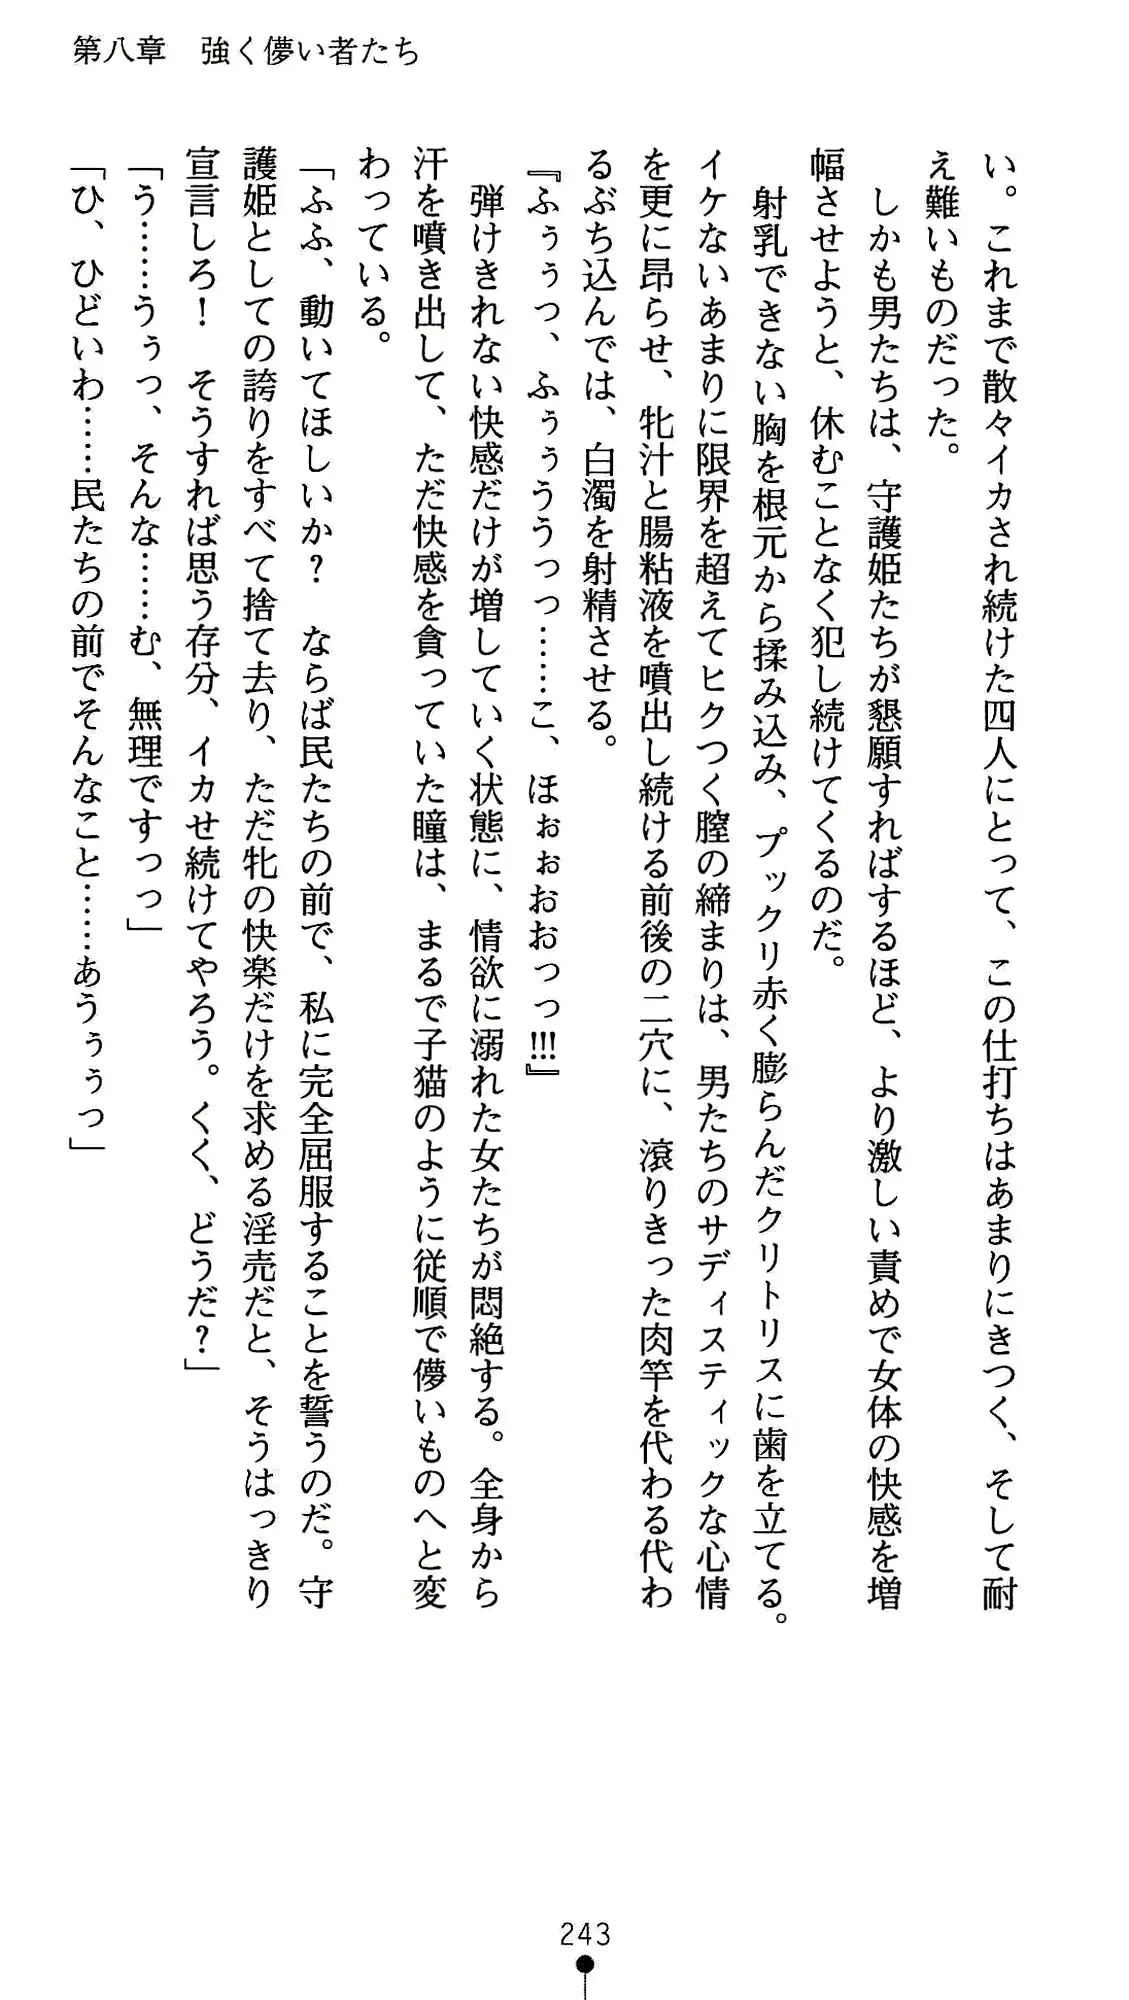 第八章　強く儚い者たち
い。これまで散々イカされ続けた四人にとって、この仕打ちはあまりにきつく、そして耐
え難いものだった。
　しかも男たちは、守護姫たちが懇願すればするほど、より激しい責めで女体の快感を増
幅させようと、休むことなく犯し続けてくるのだ。
　射乳できない胸を根元から揉み込み、プックリ赤く膨らんだクリトリスに歯を立てる。
イケないあまりに限界を超えてヒクつく膣の締まりは、男たちのサディスティックな心情
を更に昂らせ、牝汁と腸粘液を噴出し続ける前後の二穴に、滾りきった肉竿を代わる代わ
るぶち込んでは、白濁を射精させる。
『ふぅぅっ、ふぅぅううっっ……こ、ほぉぉおおっっ!!!』
　弾けきれない快感だけが増していく状態に、情欲に溺れた女たちが悶絶する。全身から
汗を噴き出して、ただ快感を貪っていた瞳は、まるで子猫のように従順で儚いものへと変
わっている。
「ふふ、動いてほしいか？　ならば民たちの前で、私に完全屈服することを誓うのだ。守
護姫としての誇りをすべて捨て去り、ただ牝の快楽だけを求める淫売だと、そうはっきり
宣言しろ！　そうすれば思う存分、イカせ続けてやろう。くく、どうだ？」
「う……うぅっ、そんな……む、無理ですっっ」
「ひ、ひどいわ……民たちの前でそんなこと……あうぅぅっ」
243